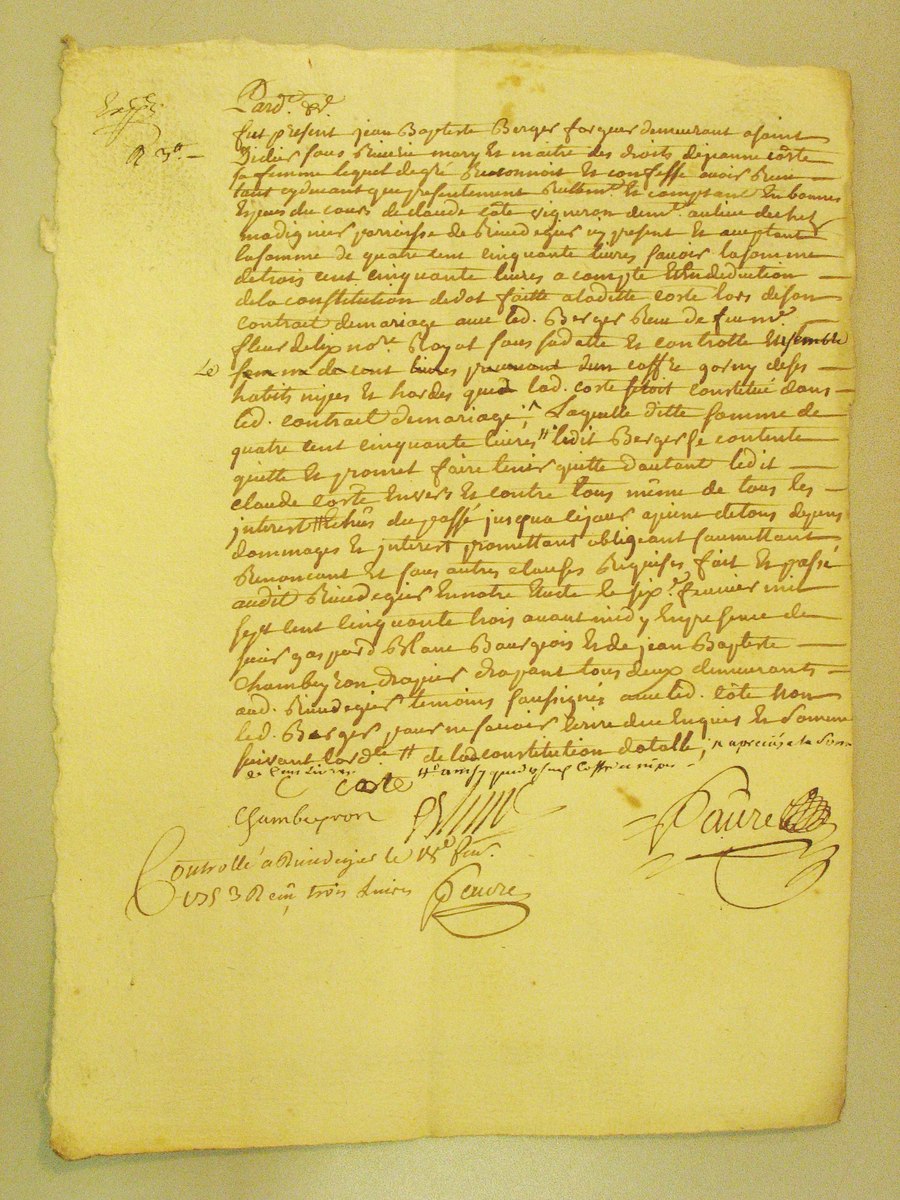 Pard.t
fut present jean Baptiste Berger forgeur demeurant a saint
Didier sous Riverie mary et maitre des droits de jeanne côste
sa femme lequel de gré reconnoit et confesse avoir reçu
tant cydevant que presentement reellem.t et comptant en bonnes
especes du cours de claude côte vigneron dem.t au lieu de
madignieu parroisse de Rivedegier cy present et acceptant
la somme de quatre cent cinquante livres savoir la somme
de trois cent cinquante livres a compte et en deduction
de la constitution de dot faitte a laditte coste lors de son
contrait de mariage avec led. Berger Reçu de feu m.e
fleurdelix no.re Royal sous sa datte et controlle ensemble
Le somme de cent livres provenant d'un coffre gorny de ses
habits nipes et hardes que lad. coste s'etoit constitué dans
led. contrait de mariage; Laquelle ditte somme de
quatre cent cinquante livres ledit Berger se contente
quitte et promet faire tenir quitte d'autant ledit
claude coste envers et contre tous même de tous les
interest echûs du passé jusqua ce jour a peine de tous depens
dommages et interest promettant obligeant soumettant
Renoncant et sous autres clauses requises fait et passé
audit Rivedegier en notre etude le six.e fevrier mil
sept cent cinquante trois avant midy en presence de
sieur gaspard Blanc Bourgeois et de jean Baptiste
Chambeyron drapier drapant tous deux demeurants
aud. Rivedegier temoins soussignes avec led. côte non
led. Berger pour ne savoir ecrire de ce enquis et somme
suivant l'ord.ce de lad constitution dotalle,
de cent livres
Coste
Chambeyron
Favre
Controllé a Rivedegier le fev.
1753 R trois livres Favre